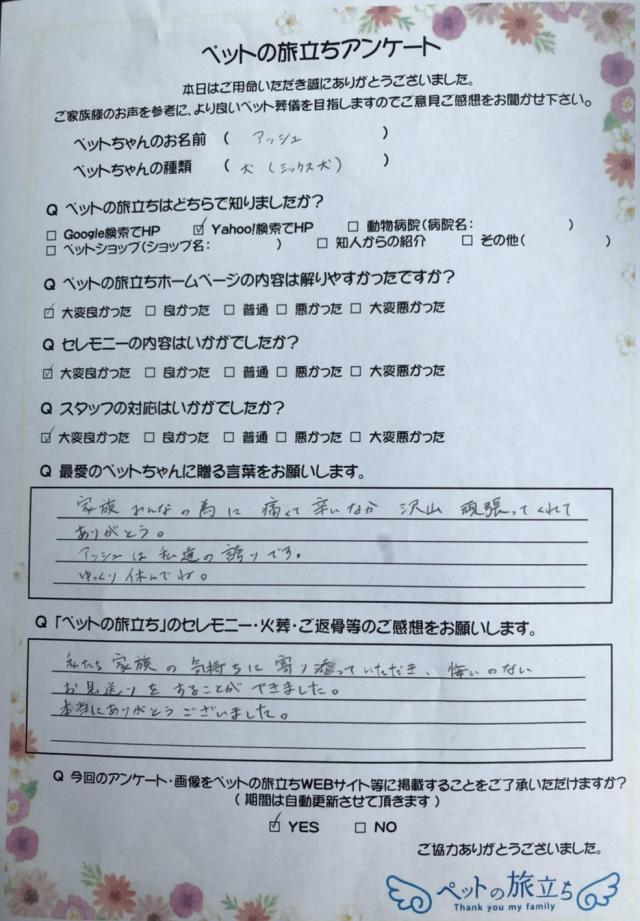 ペットの旅立ちアンケート
本日はご用命いただき誠にありがとうございました。
ご家族様のお声を参考に、より良いペット葬儀を目指しますのでご意見ご感想をお聞かせ下さい。
ペットちゃんのお名前 ( アッシュ )
ペットちゃんの種類 ( 犬 (ミックス犬) )
Q ペットの旅立ちはどちらで知りましたか?
□ Google検索でHP ☑ Yahoo!検索でHP □ 動物病院(病院名: )
□ ペットショップ(ショップ名: ) □ 知人からの紹介 □ その他( )
Q ペットの旅立ちホームページの内容は解りやすかったですか?
☑ 大変良かった □ 良かった □ 普通 □ 悪かった □ 大変悪かった
Q セレモニーの内容はいかがでしたか?
☑ 大変良かった □ 良かった □ 普通 □ 悪かった □ 大変悪かった
Q スタッフの対応はいかがでしたか?
☑ 大変良かった □ 良かった □ 普通 □ 悪かった □ 大変悪かった
Q 最愛のペットちゃんに贈る言葉をお願いします。
家族みんなの為に 痛くて辛いなか 沢山 頑張ってくれて
ありがとう。
アッシュは私達の誇りです。
ゆっくり休んでね。
Q 「ペットの旅立ち」のセレモニー・火葬・ご返骨等のご感想をお願いします。
私たち家族の気持ちに寄り添っていただき、悔いのない
お見送りをすることができました。
本当にありがとうございました。
Q 今回のアンケート・画像をペットの旅立ちWEBサイト等に掲載することをご了承いただけますか?
( 期間は自動更新させて頂きます )
☑ YES □ NO
ご協力ありがとうございました。
ペットの旅立ち
Thank you my family